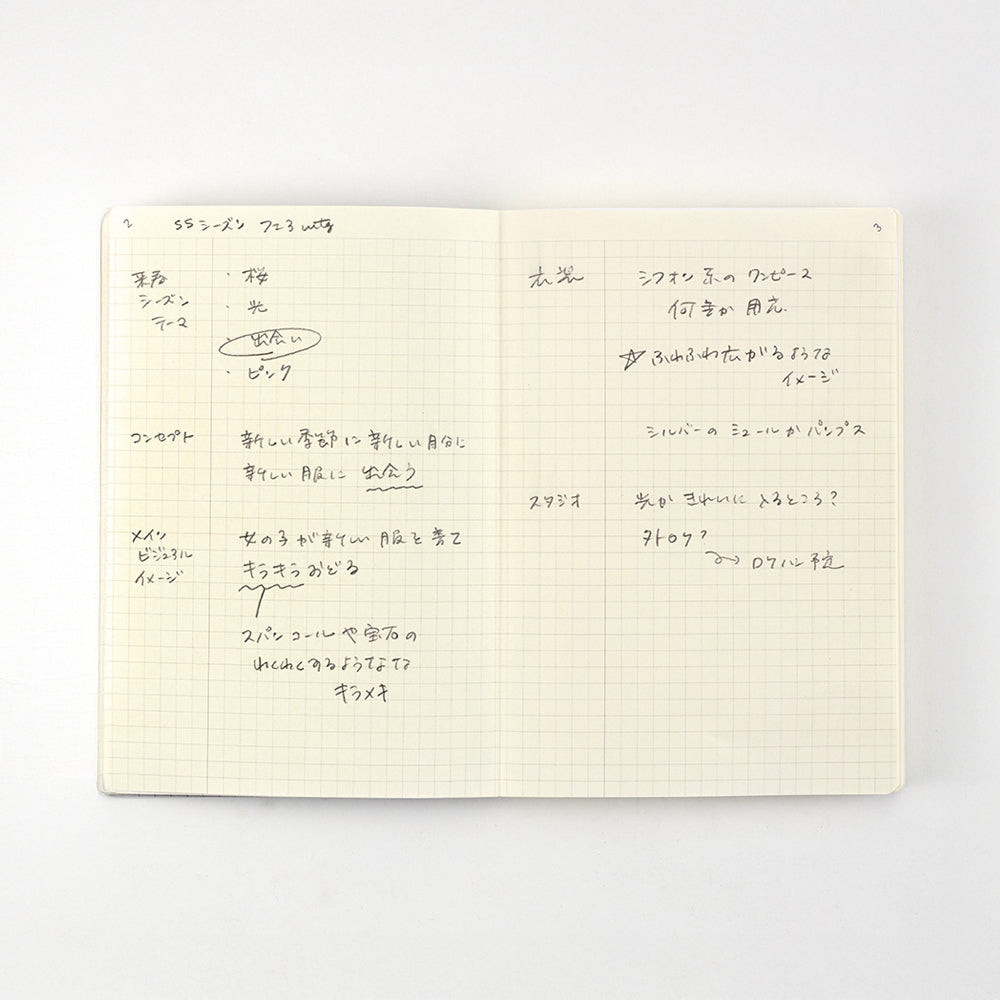 2
SSシーズン フェア mtg
来春
シーズン
テーマ
・桜
・光
・出会い
・ピンク
コンセプト
新しい季節に新しい自分に
新しい服に 出会う
メイン
ビジュアル
イメージ
女の子が新しい服を着て
キラキラおどる
スパンコールや宝石の
わくわくするような
キラメキ
3
衣裳
シフォン系のワンピース
何色か用意
☆ふわふわ広がるような
イメージ
シルバーのミュールかパンプス
スタジオ
光がきれいに入るところ?
外ロケ?
→ロケハン予定